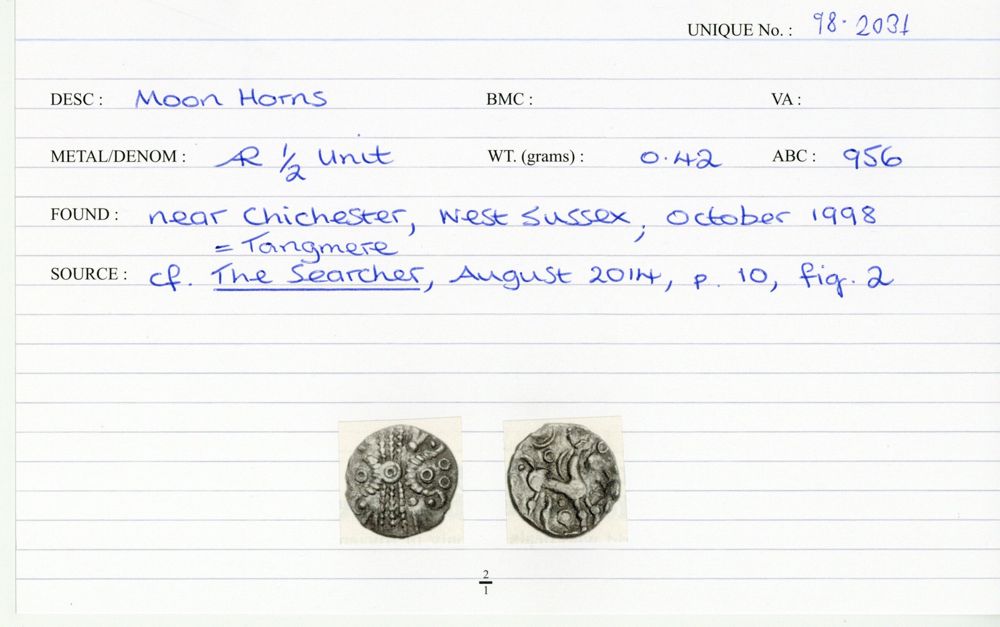 UNIQUE No. : 98·2031
DESC : Moon Horns BMC : VA :
METAL/DENOM : AR 1/2 Unit WT. (grams) : 0·42 ABC : 956
FOUND : near Chichester, West Sussex, October 1998
= Tangmere
SOURCE : cf. The Searcher, August 2014, p. 10, fig. 2
2/1